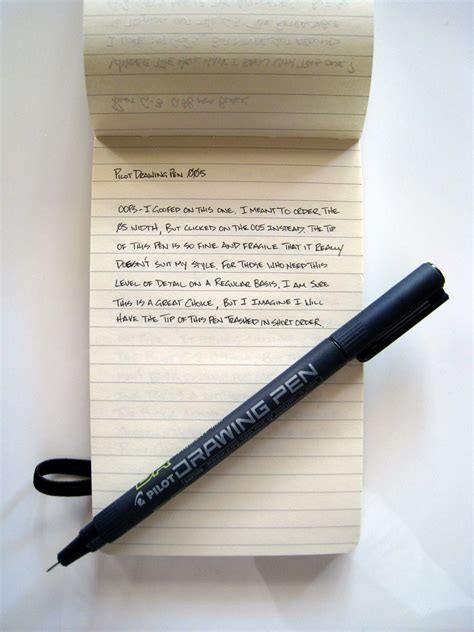 PILOT DRAWING PEN 005
OOPS - I GOOFED ON THIS ONE. I MEANT TO ORDER THE
05 WIDTH, BUT CLICKED ON THE 005 INSTEAD. THE TIP
OF THIS PEN IS SO FINE AND FRAGILE THAT IT REALLY
DOESN'T SUIT MY STYLE. FOR THOSE WHO NEED THIS
LEVEL OF DETAIL ON A REGULAR BASIS, I AM SURE
THIS IS A GREAT CHOICE, BUT I IMAGINE I WILL
HAVE THE TIP OF THIS PEN TRASHED IN SHORT ORDER.
PILOT DRAWING PEN